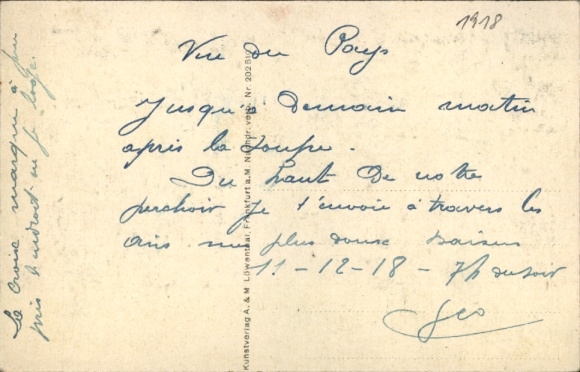 1918
Vue du Pays
Jusqu'à Demain matin
après la Soupe.
Du haut De notre
perchoir je t'envoie à travers les
airs mes plus doux Baisers
11-12-18 - 7h du soir
Geo
La Croix marque à peu
près l'endroit où je loge.
Kunstverlag A. & M. Löwenthal, Frankfurt a. M. Nachdr. verb. Nr. 202